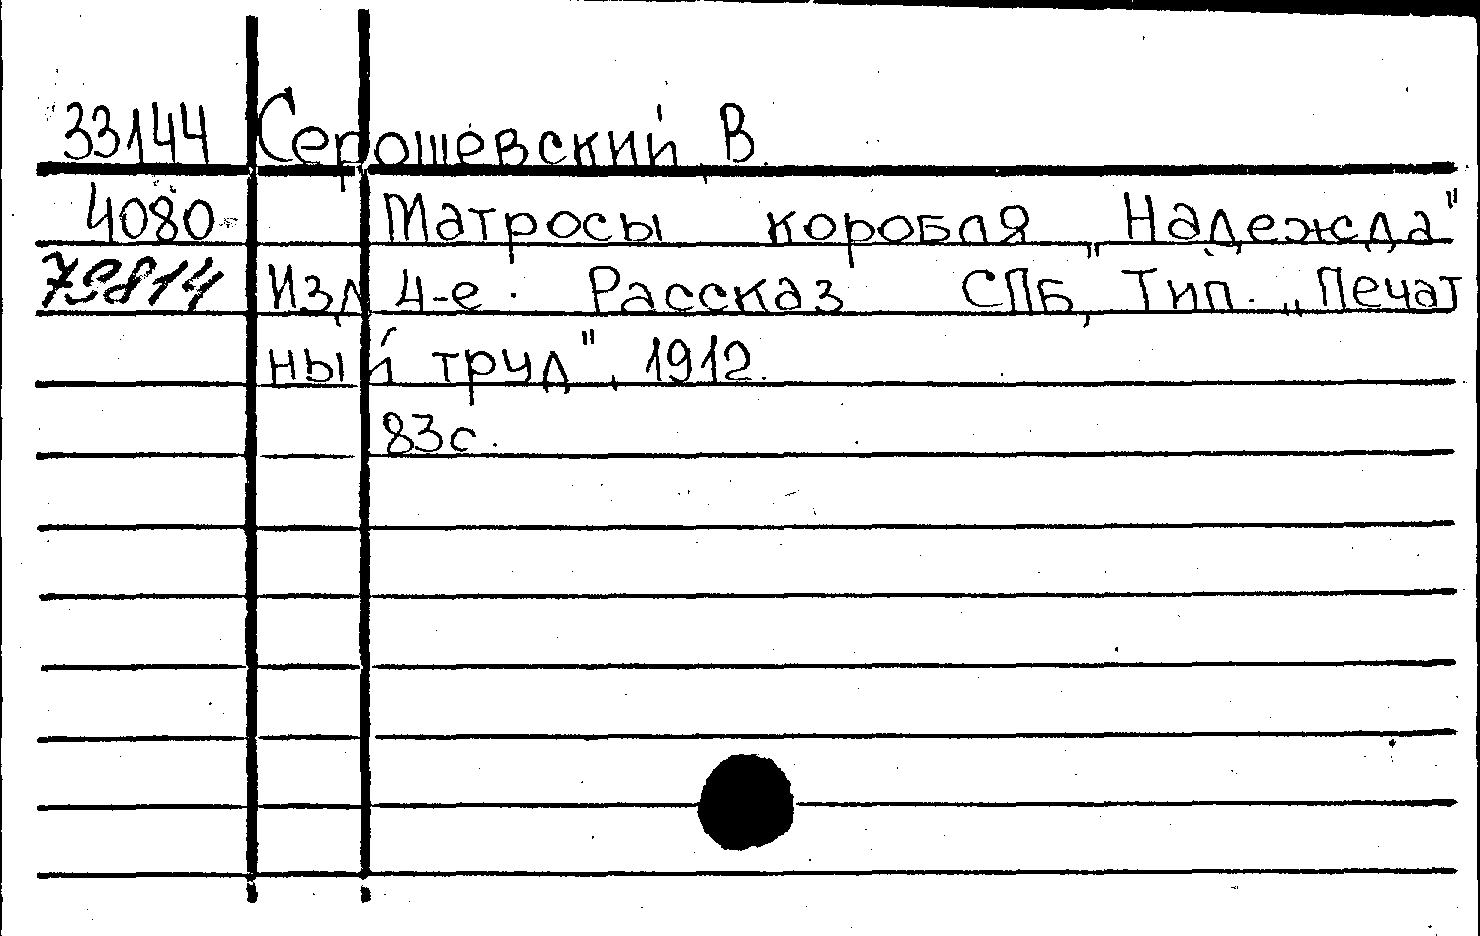 33144 Серошевский, В.
4080 Матросы коробля „Надежда"
79814 Изд. 4-е. Рассказ СПБ, Тип. „Печат
ный труд", 1912.
83с.